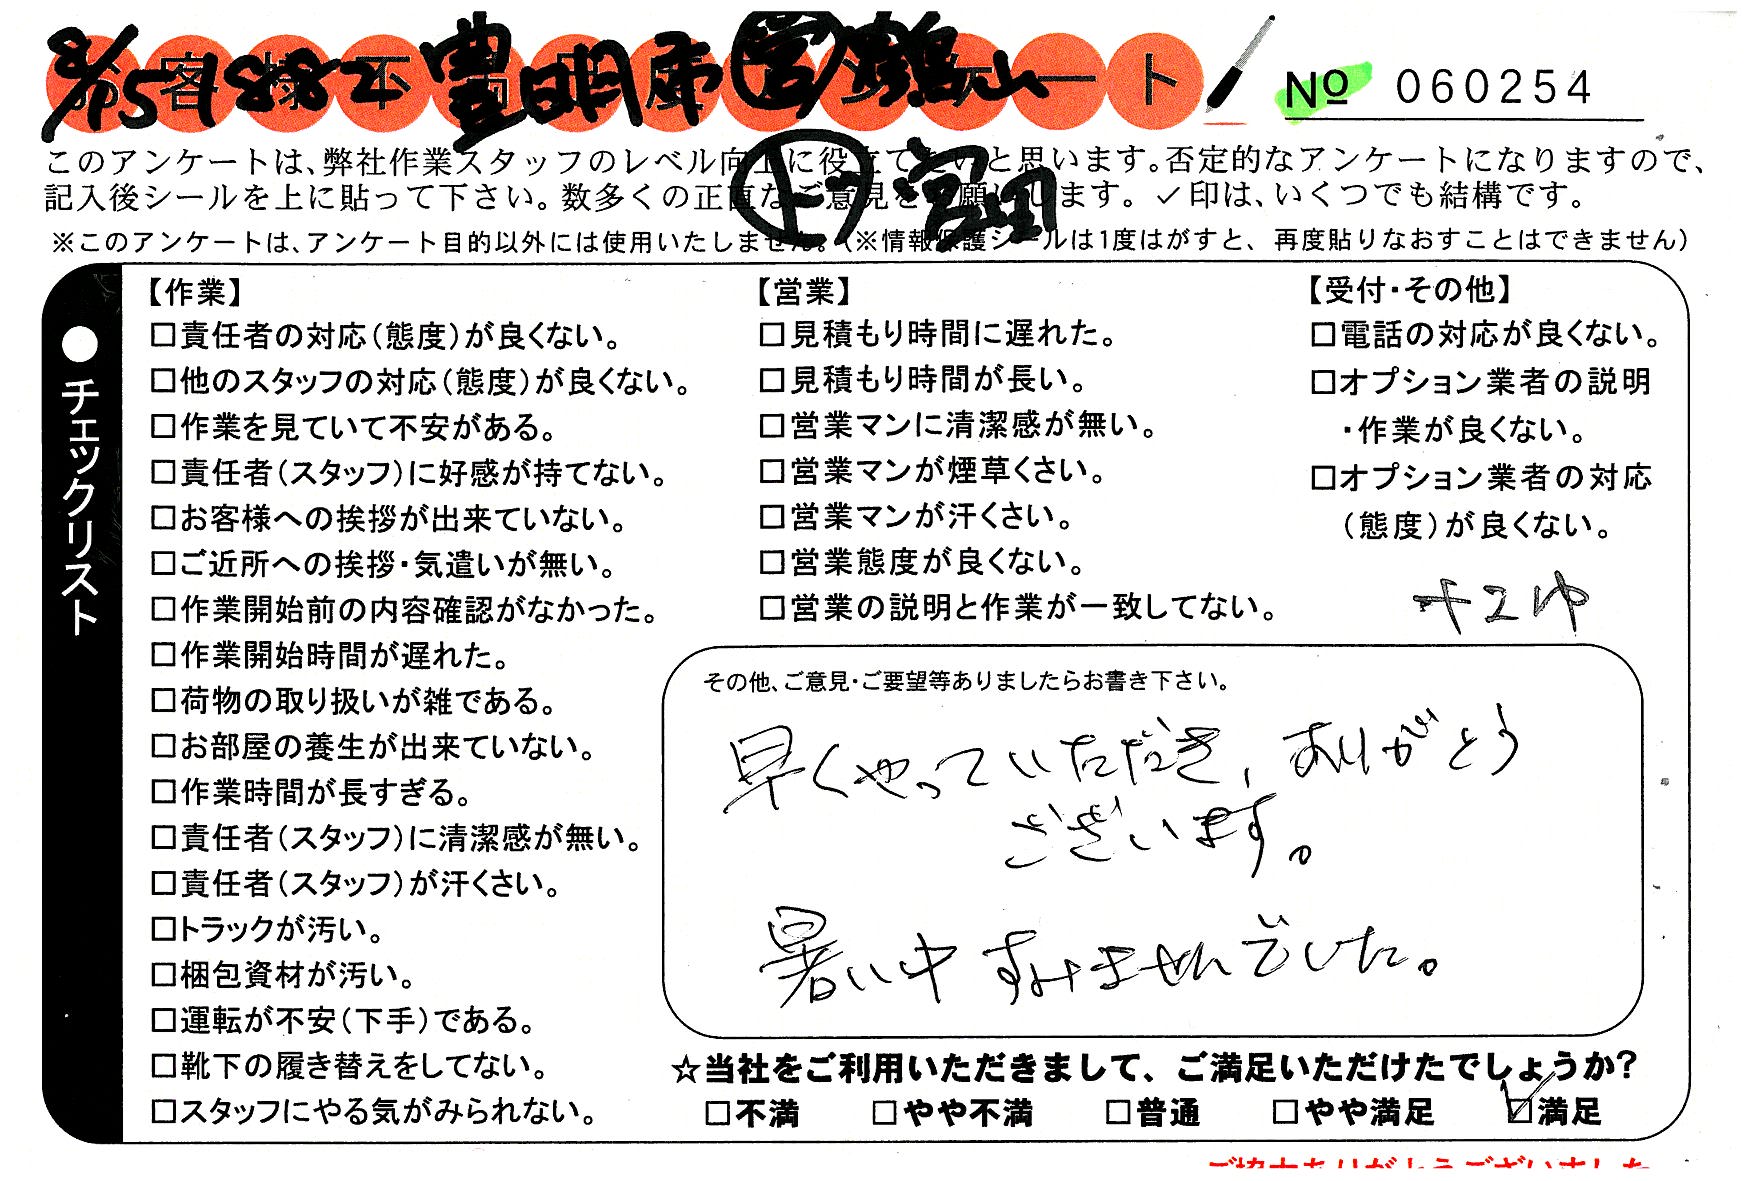 8/15 1882 豊明市 営 鶴山
ト 宮田
No 060254
このアンケートは、弊社作業スタッフのレベル向上に役立てたいと思います。否定的なアンケートになりますので、
記入後シールを上に貼って下さい。数多くの正直なご意見をお願いします。✓印は、いくつでも結構です。
※このアンケートは、アンケート目的以外には使用いたしません。(※情報保護シールは1度はがすと、再度貼りなおすことはできません)
●チェックリスト
【作業】
□責任者の対応(態度)が良くない。
□他のスタッフの対応(態度)が良くない。
□作業を見ていて不安がある。
□責任者(スタッフ)に好感が持てない。
□お客様への挨拶が出来ていない。
□ご近所への挨拶・気遣いが無い。
□作業開始前の内容確認がなかった。
□作業開始時間が遅れた。
□荷物の取り扱いが雑である。
□お部屋の養生が出来ていない。
□作業時間が長すぎる。
□責任者(スタッフ)に清潔感が無い。
□責任者(スタッフ)が汗くさい。
□トラックが汚い。
□梱包資材が汚い。
□運転が不安(下手)である。
□靴下の履き替えをしてない。
□スタッフにやる気がみられない。
【営業】
□見積もり時間に遅れた。
□見積もり時間が長い。
□営業マンに清潔感が無い。
□営業マンが煙草くさい。
□営業マンが汗くさい。
□営業態度が良くない。
□営業の説明と作業が一致してない。
【受付・その他】
□電話の対応が良くない。
□オプション業者の説明
・作業が良くない。
□オプション業者の対応
(態度)が良くない。
その他、ご意見・ご要望等ありましたらお書き下さい。
早くやっていただき、ありがとう
ございます。
暑い中 すみませんでした。
☆当社をご利用いただきまして、ご満足いただけたでしょうか?
□不満 □やや不満 □普通 □やや満足 ☑満足
ご協力ありがとうございました